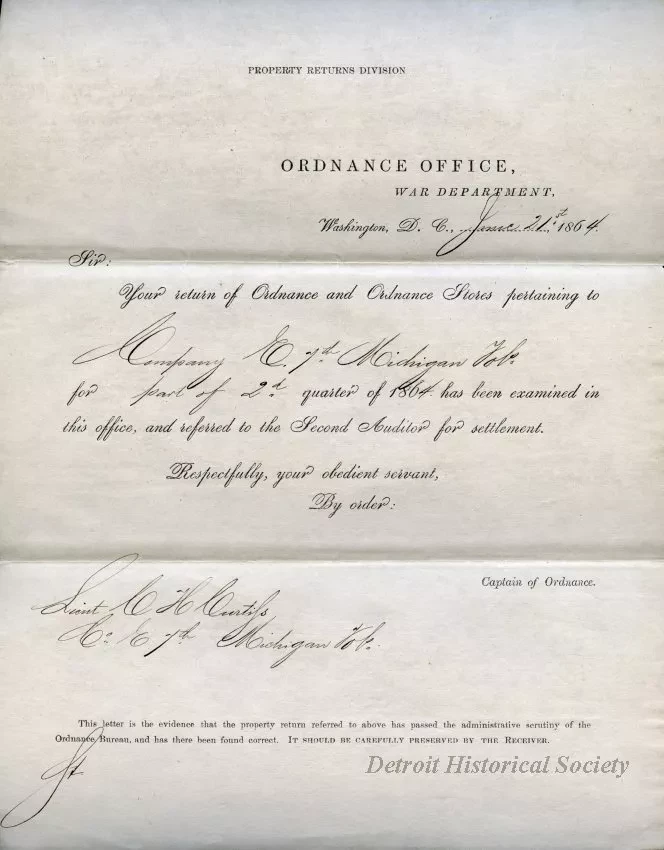 PROPERTY RETURNS DIVISION
ORDNANCE OFFICE,
WAR DEPARTMENT,
Washington, D. C., June 21st 1864.
Sir:
Your return of Ordnance and Ordnance Stores pertaining to
Company E. 7th Michigan Vols
for part of 2d quarter of 1864 has been examined in
this office, and referred to the Second Auditor for settlement.
Respectfully, your obedient servant,
By order:
Captain of Ordnance.
Lieut C H Curtiss
Co E 7th Michigan Vols.
This letter is the evidence that the property return referred to above has passed the administrative scrutiny of the
Ordnance Bureau, and has there been found correct. IT SHOULD BE CAREFULLY PRESERVED BY THE RECEIVER.
Detroit Historical Society